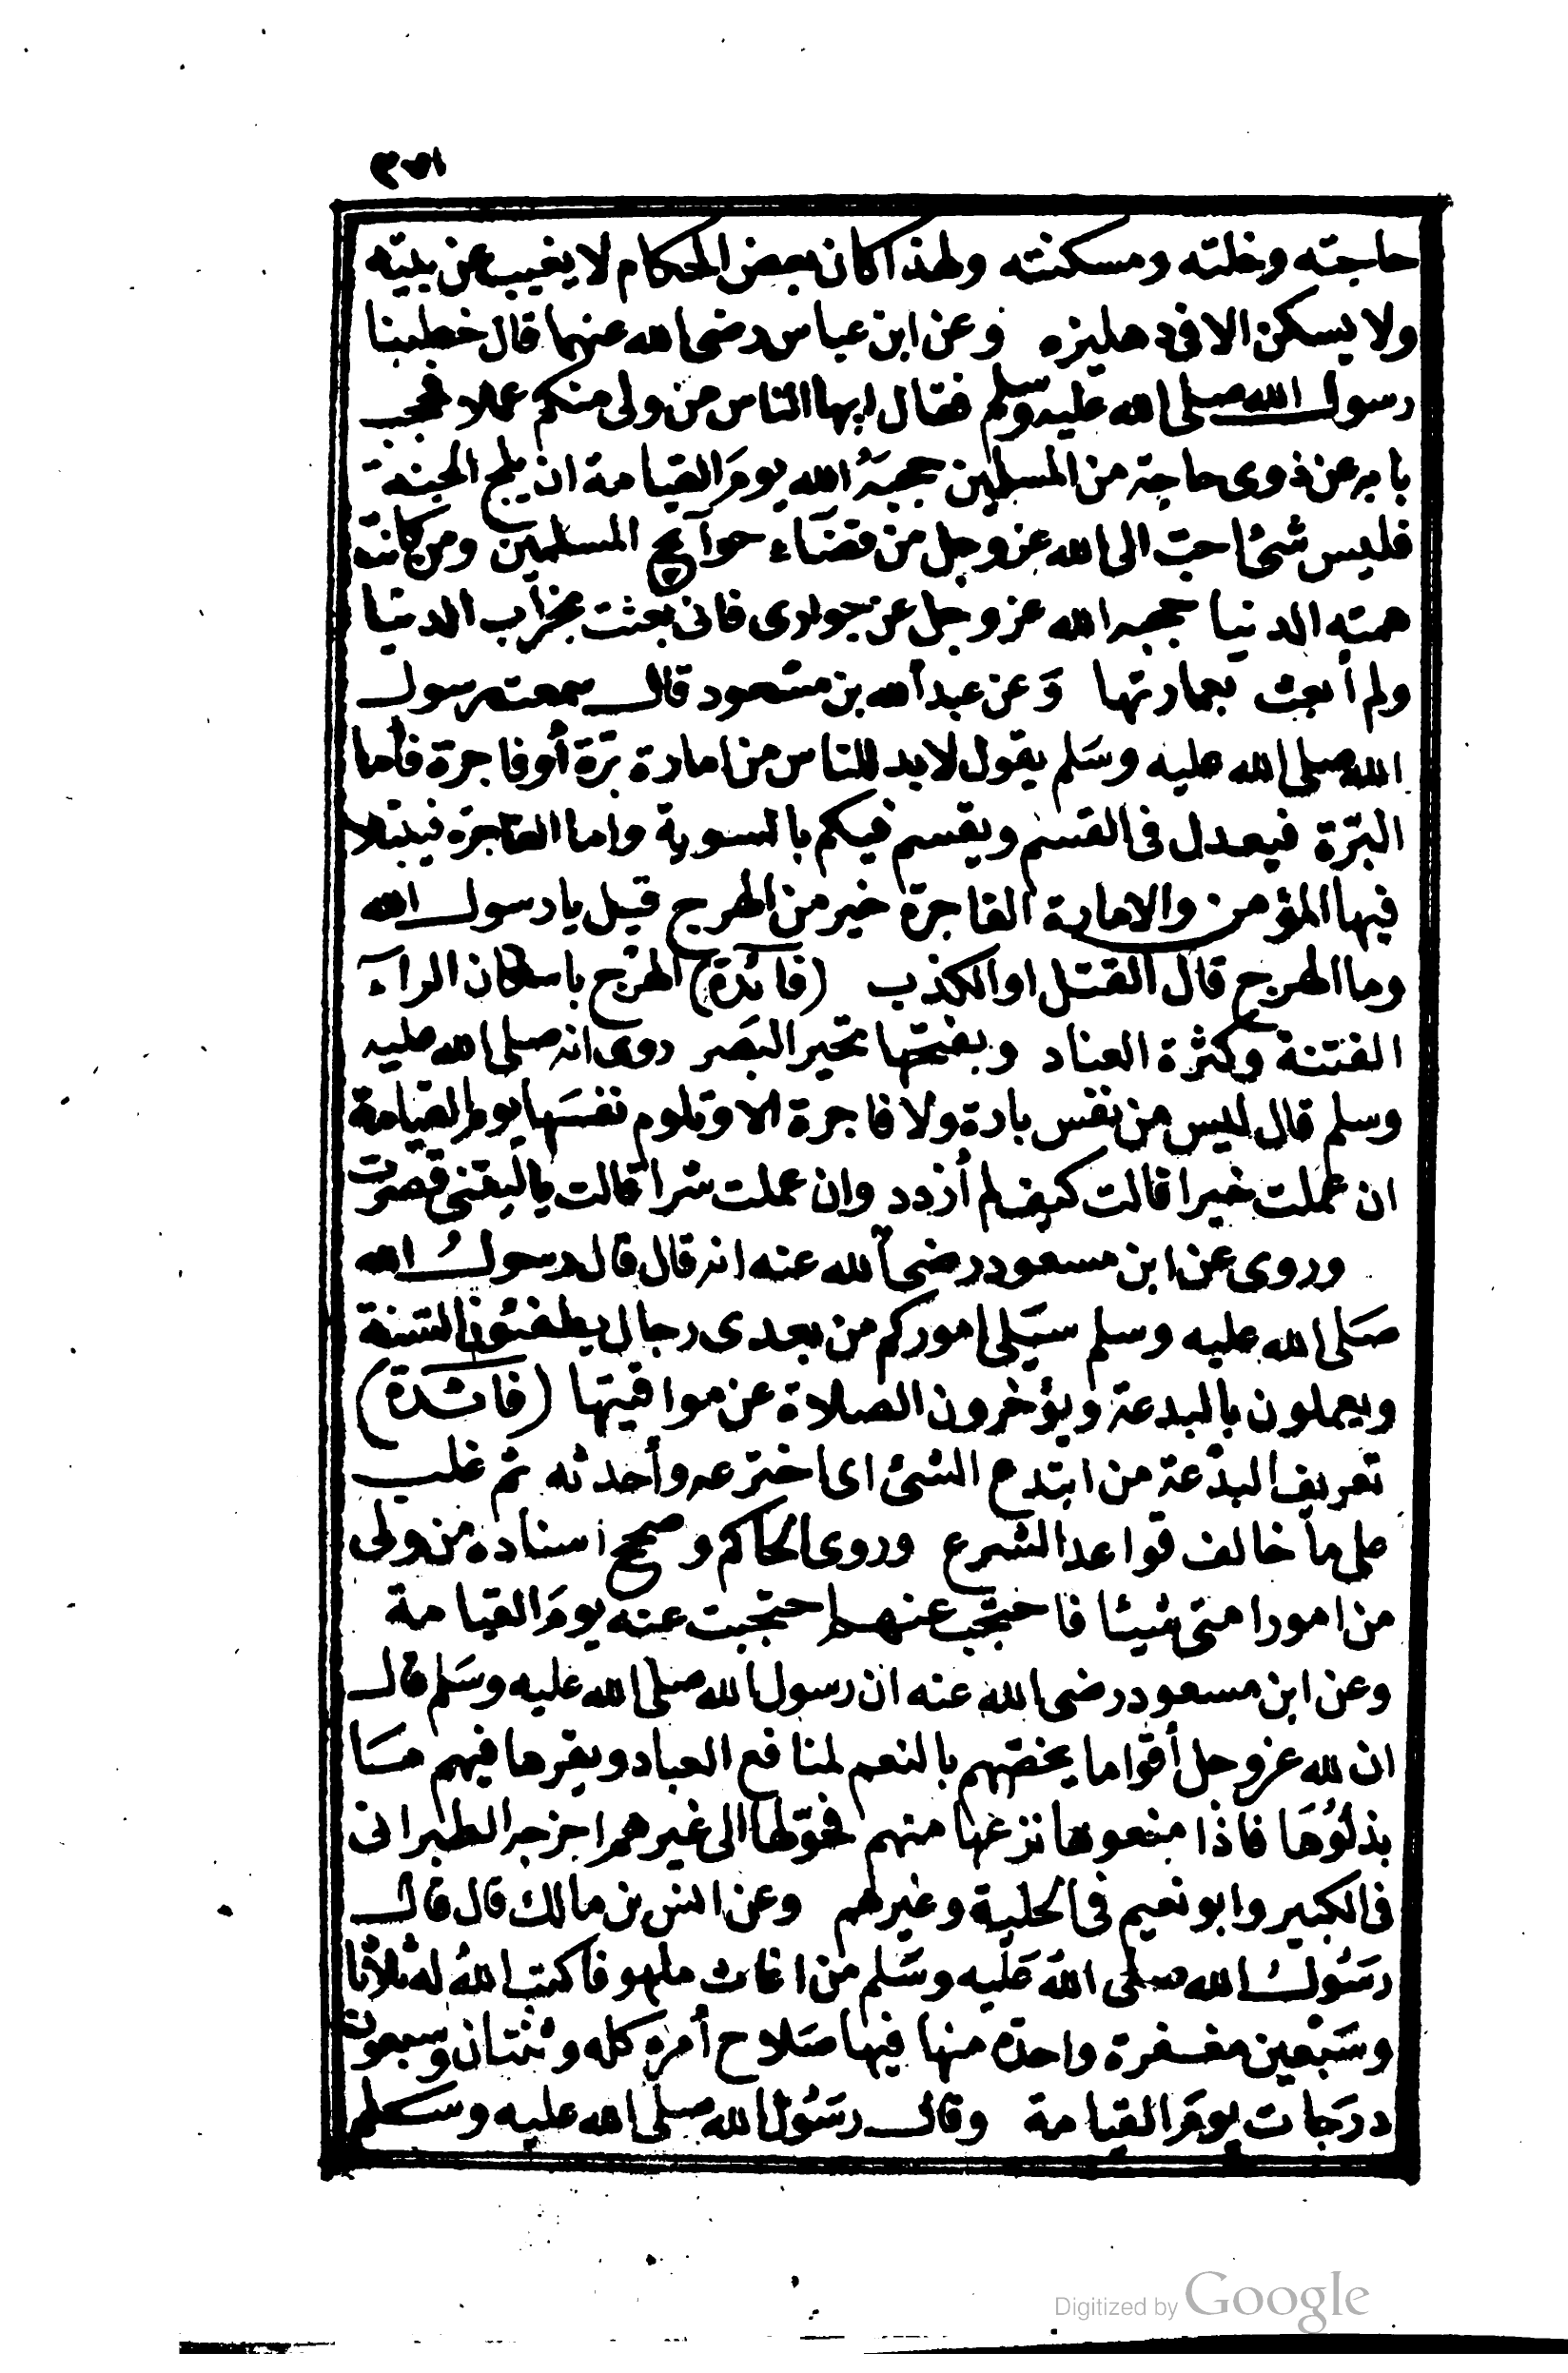 حاجته وخلته ومسكنته ولهذا كان بعض الحكام لا يغيب عن بيته
ولا يسكن الا فى دهليزه وعن ابن عباس رضى الله عنهما قال خطبنا
رسول الله صلى الله عليه وسلم فقال ايها الناس من ولى منكم عملا فحجب
بابه عن ذوى حاجة من المسلمين حجبه الله يوم القيامة ان يلج الجنة
فليس شئ احب الى الله عز وجل من قضاء حوآيج المسلمين ومن كانت
همته الدنيا حجبه الله عز وجل عن جوارى فانى بعثت بخراب الدنيا
ولم أبعث بعمارتها وعن عبد الله بن مسعود قال سمعت رسول
الله صلى الله عليه وسلم يقول لابد للناس من امارة برة أو فاجرة فأما
البرّة فيعدل فى القسم ويقسم فيكم بالسوية واما الفاجرة فيبتلا
فيها المؤمن والامارة الفاجرة خير من الهرج قيل يا رسول الله
وما الهرج قال القتل او الكذب (فائدة) الهرْج باسكان الرآء
الفتنة وكثرة العناد وبفتحها تحير البصر روى انه صلى الله عليه
وسلم قال ليس من نفس بارة ولا فاجرة الا وتلوم نفسها يوم القيامة
ان عملت خيرا قالت كيف لم أزدد وان عملت شرا قالت ياليتنى قصرت
وروى عن ابن مسعود رضى الله عنه انه قال قال رسولُ الله
صَلى الله عليه وسلم سيَلى اموركم من بعدى رجال يطفئون السنة
ويعملون بالبدعة ويؤخرون الصلاة عن مواقيتها (فائدة)
تعريف البدْعة من ابتدع الشئ اى اخترعه وأحدثه ثم غلب
على ما خالف قواعد الشرع وروى الحاكم وصحح اسناده من ولى
من امور امتى شيئا فاحتجب عنهم احتجبت عنه يومَ القيامة
وعن ابن مسعود رضى الله عنه ان رسول الله صلى الله عليه وسَلم قال
ان لله عز وجل أقواما يخصّهم بالنعم لمنافع العباد ويقرها فيهم مَا
بذلُوُهَا فاذا منعوها نزعها منهم فحوّلها الى غيرهم اخرجه الطبرانى
فى الكبير وابو نعيم فى الحلية وغيرهم وعن انس بن مالك قال قال
رسَوُلُ الله صلى اللهَ عَليه وسَلم من اغاث ملهوفا كتب اللهُ له ثلاثا
وسَبْعين مغفرة واحدة منها فيها صَلاح أمره كله وثنتان وسبعون
درَجات يومَ القيامة وقال رسَوُل الله صلى الله عليه وسَلم
Digitized by Google